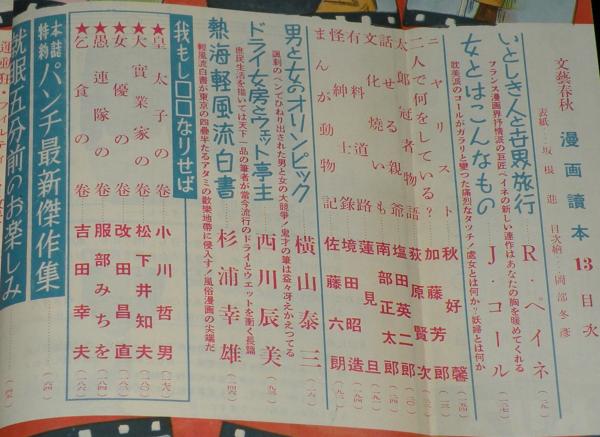 文藝春秋 漫画讀本 13 目次
表紙 坂根進 目次繪 岡部冬彦
いとしき人と世界旅行 R・ペイネ
フランス漫画界抒情派の巨匠ペイネの新しい連作はあなたの胸を暖めてくれる
女とはこんなもの J・コール
耽美派のコールがガラリと變った痛烈なタッチ!處女とは何か?妖婦とは何か
ニヤリスト 秋好馨
二人で何をしている? 加藤芳郎
太郎冠者物語 荻原賢次
話せる親爺 塩田英二郎
文化燒いも 南部正太郎
有料道路 蓮見旦
怪紳士錄 境田昭造
まんが動物記 佐藤六朗
男と女のオリンピック 横山泰三
諷刺のペンでひねり出された男と女の大競爭!鬼才の筆は益々冴えかえってる
ドライ女房とウェット亭主 西川辰美
庶民生活を描いては天下一品の筆者が當今流行のドライとウエットを衝く長篇
熱海軽風流白書 杉浦幸雄
輕風流白書が東京の四疊半たるアタミの歡樂地帶に侵入す!風俗漫画の尖端だ
我もし□□なりせば
★皇太子の巻 小川哲男
★大實業家の巻 松下井知夫
★女優の巻 改田昌直
★愚連隊の巻 服部みちを
★乞食の巻 吉田幸夫
本誌特約 パンチ最新傑作集
就眠五分前のお楽しみ